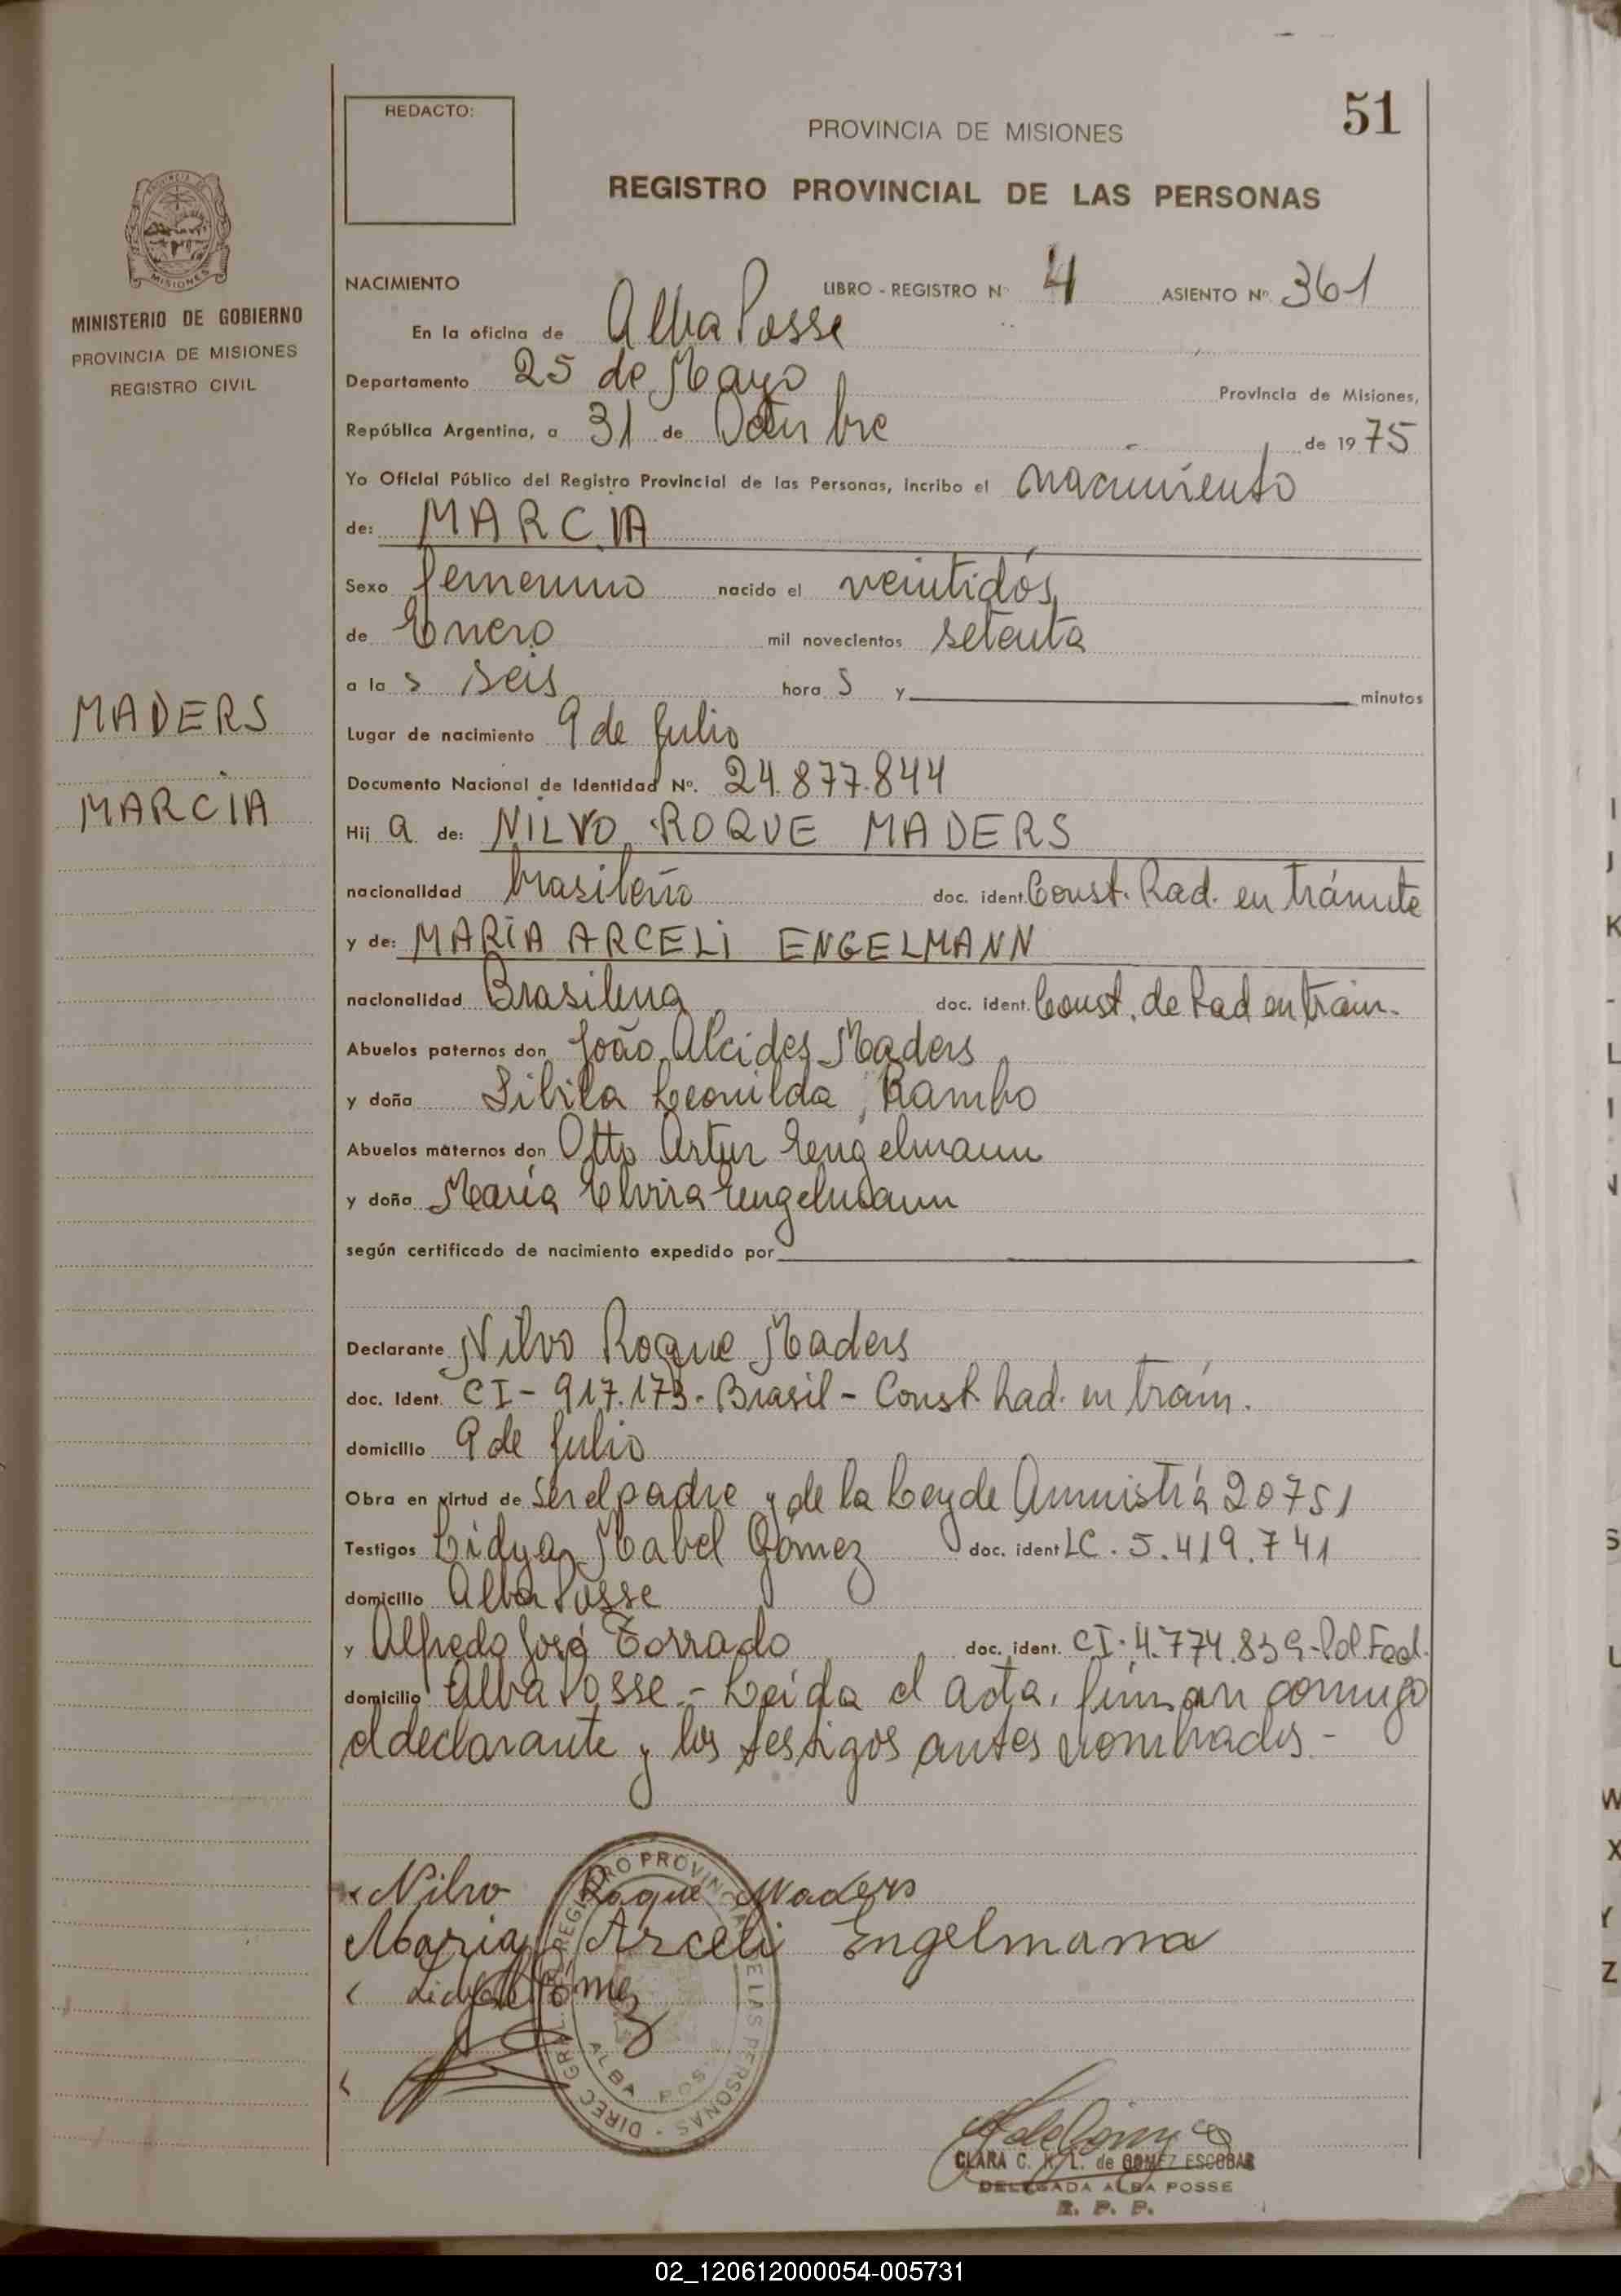 51
REDACTO:
PROVINCIA DE MISIONES
REGISTRO PROVINCIAL DE LAS PERSONAS
MISIONES
MINISTERIO DE GOBIERNO
PROVINCIA DE MISIONES
REGISTRO CIVIL
NACIMIENTO LIBRO - REGISTRO Nº 4 ASIENTO Nº 361
En la oficina de Alba Posse
Departamento 25 de Mayo Provincia de Misiones,
República Argentina, a 31 de Octubre de 1975
Yo Oficial Público del Registro Provincial de las Personas, incribo el nacimiento
de: MARCIA
Sexo femenino nacido el veintidós
de Enero mil novecientos setenta
a las seis horas y minutos
MADERS
Lugar de nacimiento 9 de Julio
Documento Nacional de Identidad Nº. 24.877.844
MARCIA
Hija de: NILVO ROQUE MADERS
nacionalidad brasileño doc. ident. Const. Rad. en trámite
y de: MARIA ARCELI ENGELMANN
nacionalidad Brasilena doc. ident. Const. de Rad en trám.
Abuelos paternos don João Alcides Maders
y doña Sibila Leonilda Rambo
Abuelos maternos don Otto Artur Engelmann
y doña María Elvira Engelmann
según certificado de nacimiento expedido por
Declarante Nilvo Roque Maders
doc. Ident. CI - 917.173 - Brasil - Const. Rad. en trám.
domicilio 9 de Julio
Obra en virtud de ser el padre y de la Ley de Amnistía 20751
Testigos Lidya Mabel Gómez doc. ident LC. 5.419.741
domicilio Alba Posse
y Alfredo José Torrado doc. ident. CI. 4.774.839 - Pol Fed.
domicilio Alba Posse - Leída el acta, firman conmigo
el declarante y los testigos antes nombrados. -
Nilvo Roque Maders
Maria Arceli Engelmann
DIREC. GRAL. REGISTRO PROVINCIAL DE LAS PERSONAS
ALBA POSSE
CLARA C. N. L. de GOMEZ ESCOBAR
DELEGADA ALBA POSSE
R. P. P.
I
J
K
L
S
U
W
X
Y
Z
02_120612000054-005731